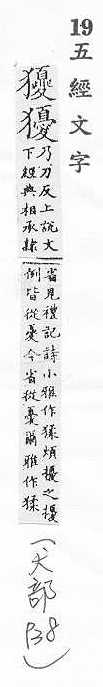 19 五經文字
獿獶
乃刀反上說文
下經典相承隸
省見禮記詩小雅作猱煩擾之擾
例皆從夒今省從憂爾雅作猱
(犬部 138)